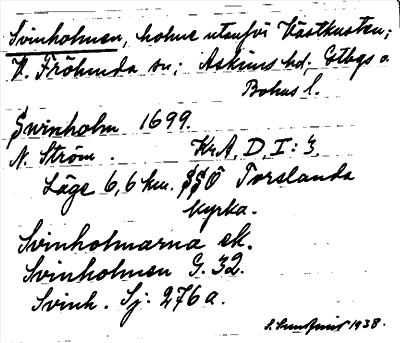 Svinholmen, holme utanför Västkusten;
V. Frölunda sn; Askims hd; Gtbgs o.
Bohus l.
Swinholm 1699.
N. Ström. KrA, D, I: 3,
Läge 6,6 km. SSO Torslanda
kyrka.
Svinholmarna ek.
Svinholmen G. 32.
Svinh. Sj. 276a.
1938.